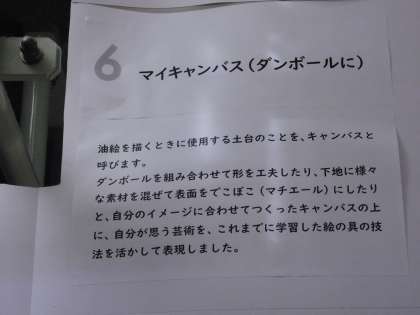 6
マイキャンバス(ダンボールに)
油絵を描くときに使用する土台のことを、キャンバスと
呼びます。
ダンボールを組み合わせて形を工夫したり、下地に様々
な素材を混ぜて表面をでこぼこ(マチエール)にしたり
と、自分のイメージに合わせてつくったキャンバスの上
に、自分が思う芸術を、これまでに学習した絵の具の技
法を活かして表現しました。